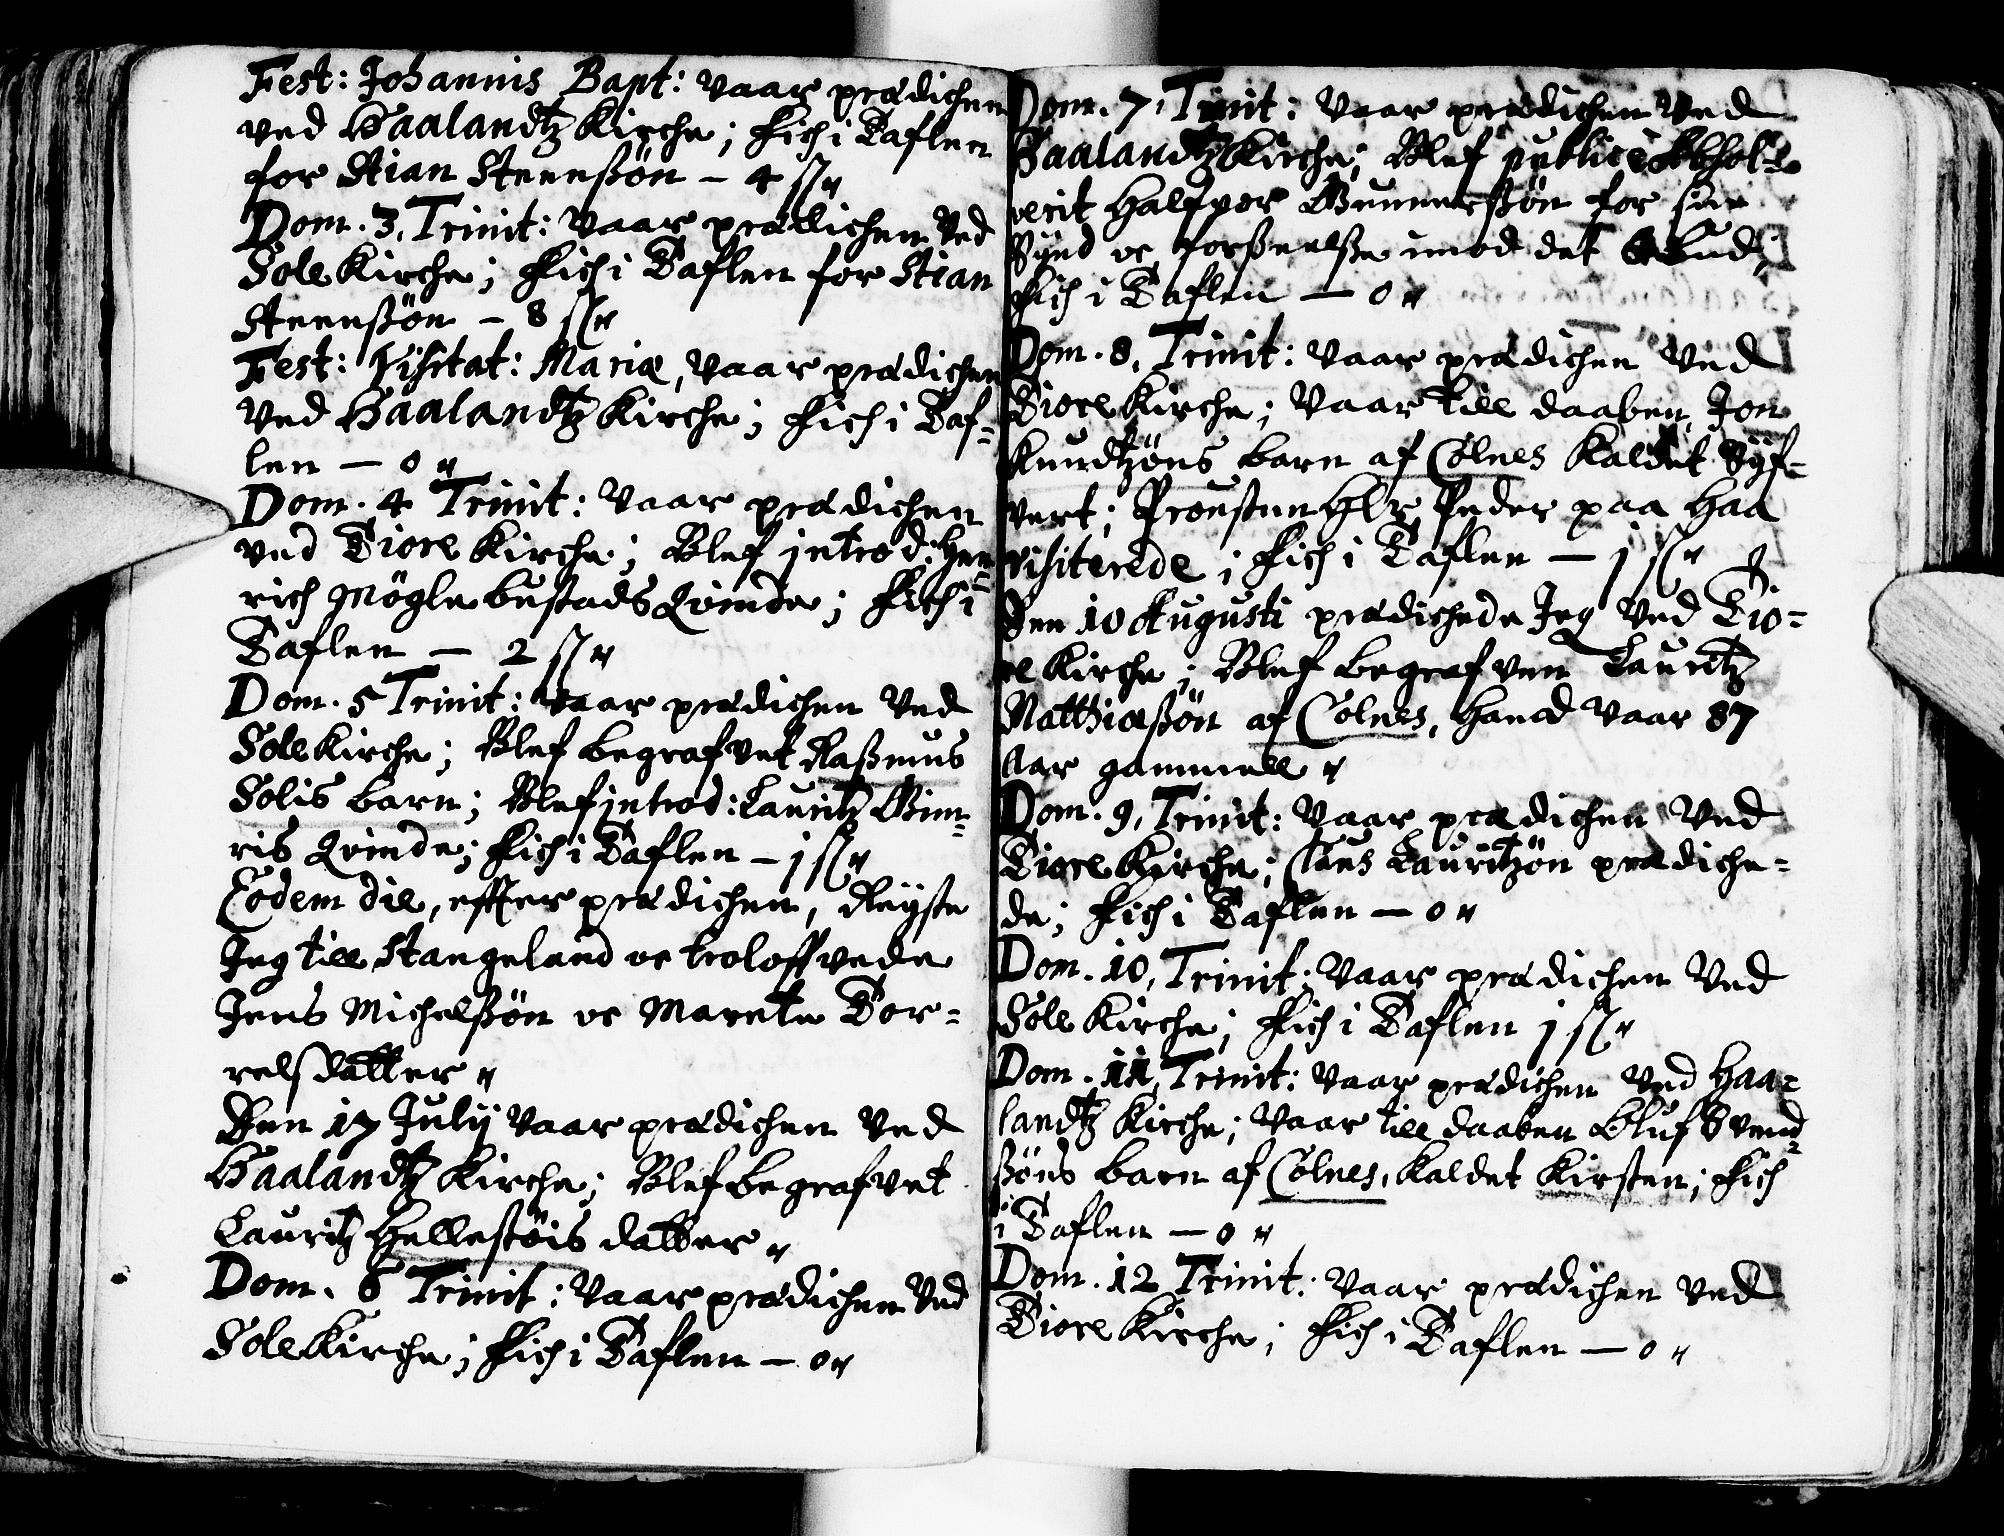 Fest: Johannis Bapt: vaar prædichen
ved Haalandtz Kirche; fich i Taflen
for Stian Steenßøn – 4 ß
Dom. 3, Trinit: vaar prædichen ved
Sole Kirche; fich i Taflen for Stian
Steenßøn – 8 ß
Fest: Visitat: Mariæ, vaar prædichen
ved Haalandtz Kirche; fich i Taf=
len – 0
Dom. 4 Trinit: vaar prædichen
ved Tiore Kirche; Blef introd: Hen=
rich Møglebustads Qvinde; fich i
Taflen – 2 ß
Dom. 5 Trinit: vaar prædichen ved
Sole Kirche; Blef begrafvet Raßmus
Solis barn; Blef introd: Lauritz Gim=
ris Qvinde; fich i Taflen – j ß
Eodem die, effter prædichen, Reyste
Jeg till Stangeland oc troloffvede
Jens Michelßøn oc Marete Tor=
relsdatter
Den 17 Julij vaar prædichen ved
Haalandtz Kirche; Blef begrafvet
Lauritz Hellestøis datter
Dom. 6 Trinit: vaar prædichen ved
Sole Kirche; fich i Taflen – 0
Dom. 7, Trinit: vaar prædichen ved
Haalandtz Kirche; Blef publicè Absol=
verit Halfvor Gunnerßøn for sin
Synd oc forßeelße imod det 6 bud;
fich i Taflen – 0
Dom. 8, Trinit: vaar prædichen ved
Tiore Kirche; vaar till daaben, Jon
Knudtzøns barn af Colnes kaldet Syf=
vert; Prousten Hlr Peder paa Haa
visiterede; fich i Taflen – j ß
Den 10 Augusti prædichede Jeg ved Tio=
re Kirche; Blef begrafven Lauritz
Matthiæßøn af Colnes, hand vaar 87
Aar gammell
Dom. 9, Trinit: vaar prædichen ved
Tiore Kirche; Claus Lauritzøn prædiche=
de; fich i Taflen – 0
Dom. 10, Trinit: vaar prædichen ved
Sole Kirche; fich i Taflen j ß
Dom. 11, Trinit: vaar prædichen ved Haa=
landtz Kirche; vaar till daaben Oluf Svend=
ßøns barn af Colnes, kaldet Kirsten; fich
i Taflen – 0
Dom. 12 Trinit: vaar prædichen ved
Tiore Kirche; fich i Taflen – 0